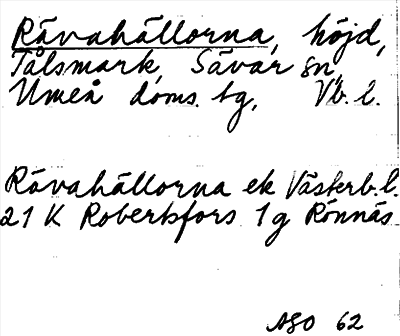 Rävahällorna, höjd,
Tålsmark, Sävar sn,
Umeå doms. tg, Vb. l.
Rävahällorna ek Västerb. l.
21 K Robertsfors 1 g Rönnäs
ASO 62